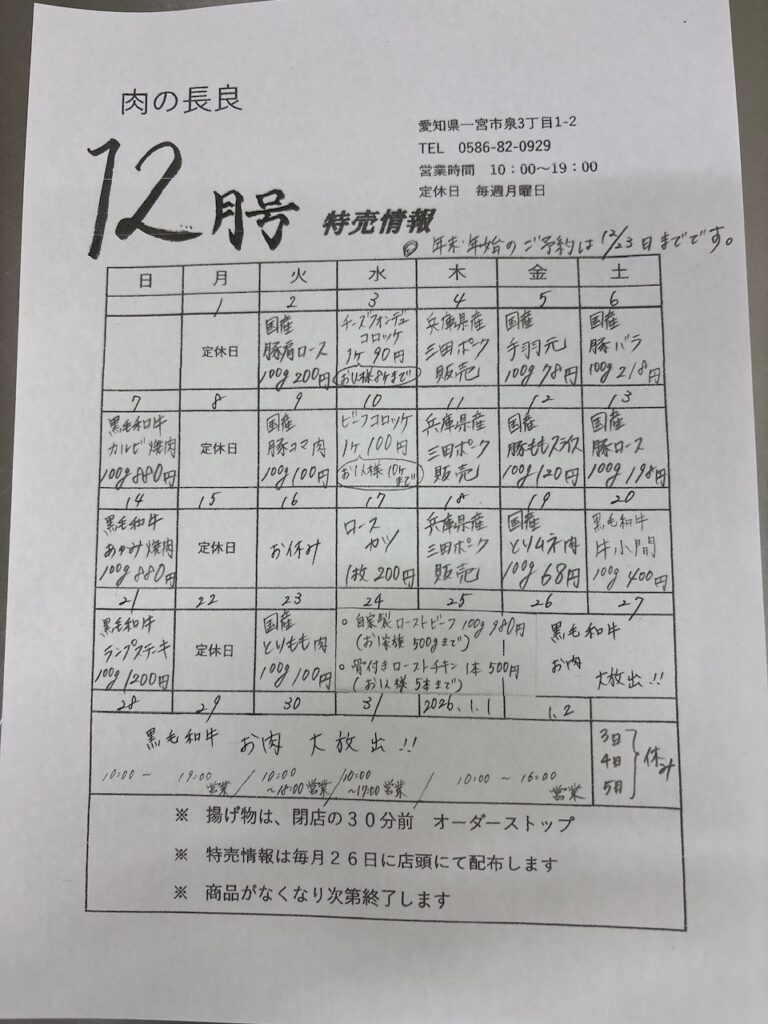 肉の長良
愛知県一宮市泉3丁目1-2
TEL 0586-82-0929
営業時間 10：00～19：00
定休日 毎週月曜日
12月号 特売情報
◎ 年末年始のご予約は12/23日までです。
日 月 火 水 木 金 土
1 2 3 4 5 6
定休日
国産
豚肩ロース
100g 200円
チーズフォンデュ
コロッケ
1ケ 90円
お1人様8ケまで
兵庫県産
三田ポーク
販売
国産
手羽元
100g 78円
国産
豚バラ
100g 218円
7 8 9 10 11 12 13
黒毛和牛
カルビ焼肉
100g 880円
定休日
国産
豚コマ肉
100g 100円
ビーフコロッケ
1ケ 100円
お1人様10ケ
まで
兵庫県産
三田ポーク
販売
国産
豚ももスライス
100g 120円
国産
豚ロース
100g 198円
14 15 16 17 18 19 20
黒毛和牛
あかみ焼肉
100g 880円
定休日
お休み
ロース
カツ
1枚 200円
兵庫県産
三田ポーク
販売
国産
とりムネ肉
100g 68円
黒毛和牛
牛小間
100g 400円
21 22 23 24 25 26 27
黒毛和牛
ランプステーキ
100g 1200円
定休日
国産
とりもも肉
100g 100円
。自家製ローストビーフ 100g 980円
(お1家族 500gまで)
。骨付きローストチキン 1本 500円
(お1人様 5本まで)
黒毛和牛
お肉
大放出!!
28 29 30 31 2026.1.1 1.2
黒毛和牛 お肉 大放出!!
10:00～19:00 営業 / 10:00～18:00営業 / 10:00～17:00営業 / 10:00～16:00 営業
3日
4日
5日
休み
※ 揚げ物は、閉店の30分前 オーダーストップ
※ 特売情報は毎月26日に店頭にて配布します
※ 商品がなくなり次第終了します